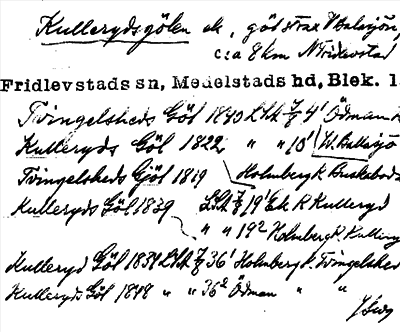 Kulleryds gölen ek, göl strax V Balsjön,
c:a 8 km N Fridlevstad
Fridlevstads sn, Medelstads hd, Blek. l
Tvingelsheds Göl 1840 LSA 7/8 4' Ödman k
Kulleryds Göl 1822 " " 10' W. Ballsjö
Tvingelsheds Gjöl 1819 Holmberg k. Buskeboda
Kulleryds Göl 1839 LSA 7/8 19' Ek k Kulleryd
" " 19² Holmberg k. Kulleryd
Kulleryd Göl 1834 LSA 7/8 36' Holmberg k. Tvingelshed
Kulleryds Göl 1848 " " 36² Ödman " "